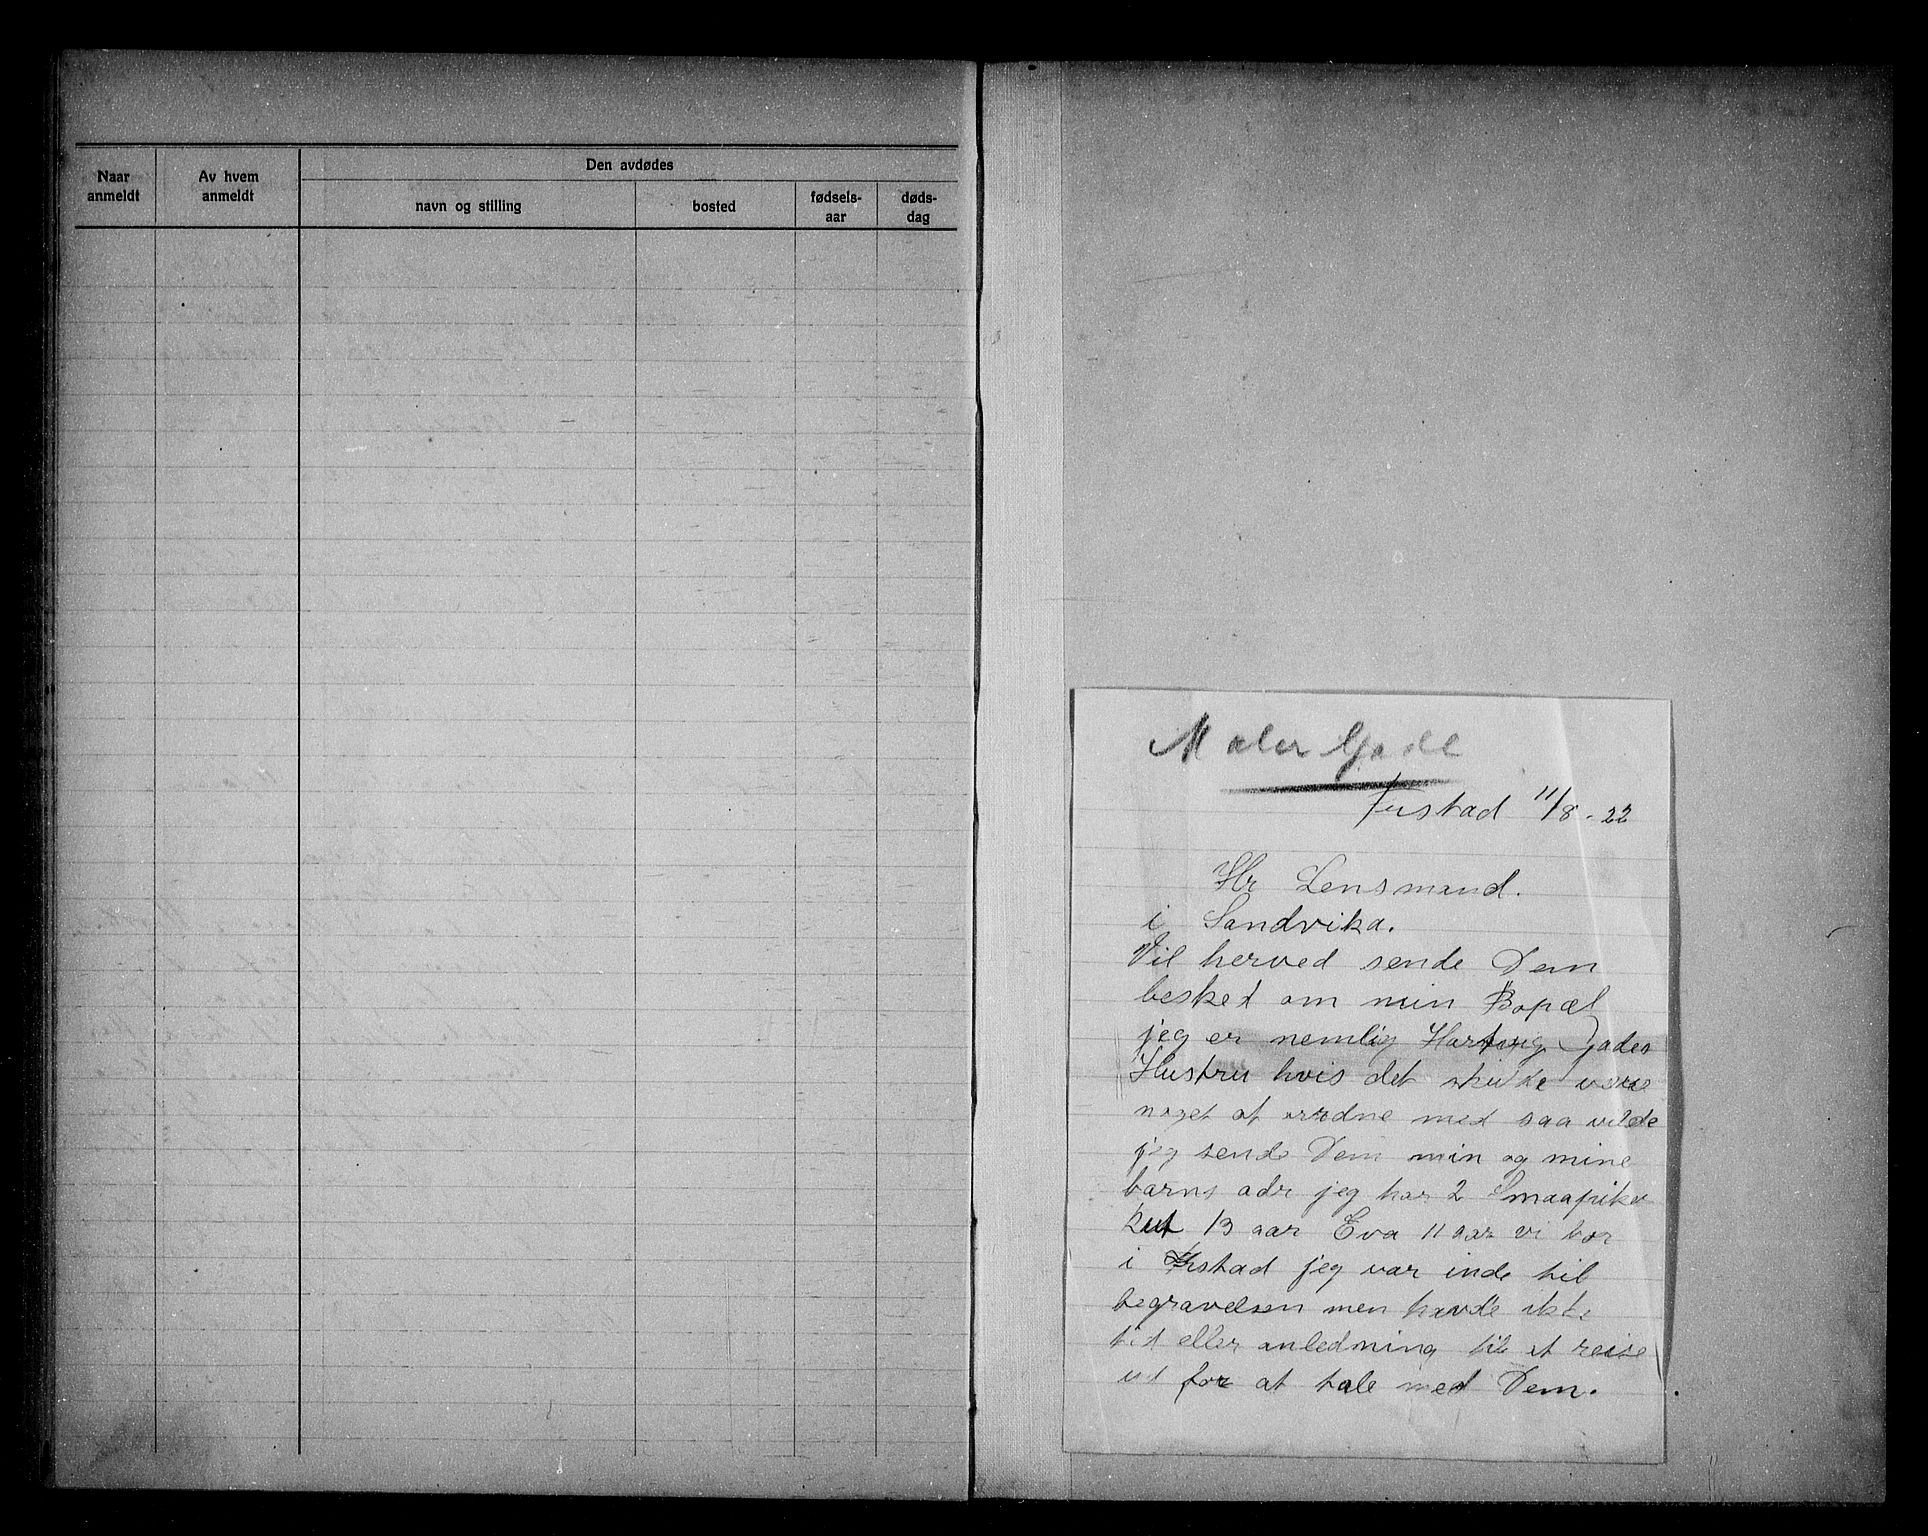 Naar
anmeldt
Av hvem
anmeldt
Den avdødes
navn og stilling
bosted
fødsels-
aar
døds-
dag
Maler Gade
11/8 - 22
Hr Lensmand.
i Sandvika.
Vil herved sende Dem
besked om min Bopæl
jeg er nemlig Hartvig Gades
Hustru hvis det skulde være
noget at ordne med saa vilde
jeg sende Dem min og mine
barns adr jeg har 2 Smaapiker
Rut 13 aar Eva 11 aar vi bor
i jeg var inde til
begravelsen men havde ikke
tid eller anledning til at reise
ut for at tale med Dem.